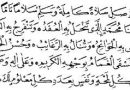 صل صلاة كاملة وسلم سلاما تاما
محمد الذي تنحل به العقد وتنفرج به
الحوائج وتنال به الرغائب وحسن
الغمام بوجهه الكريم وعلى اله
كل لمحة ونفس بعدد كل معلوم لك